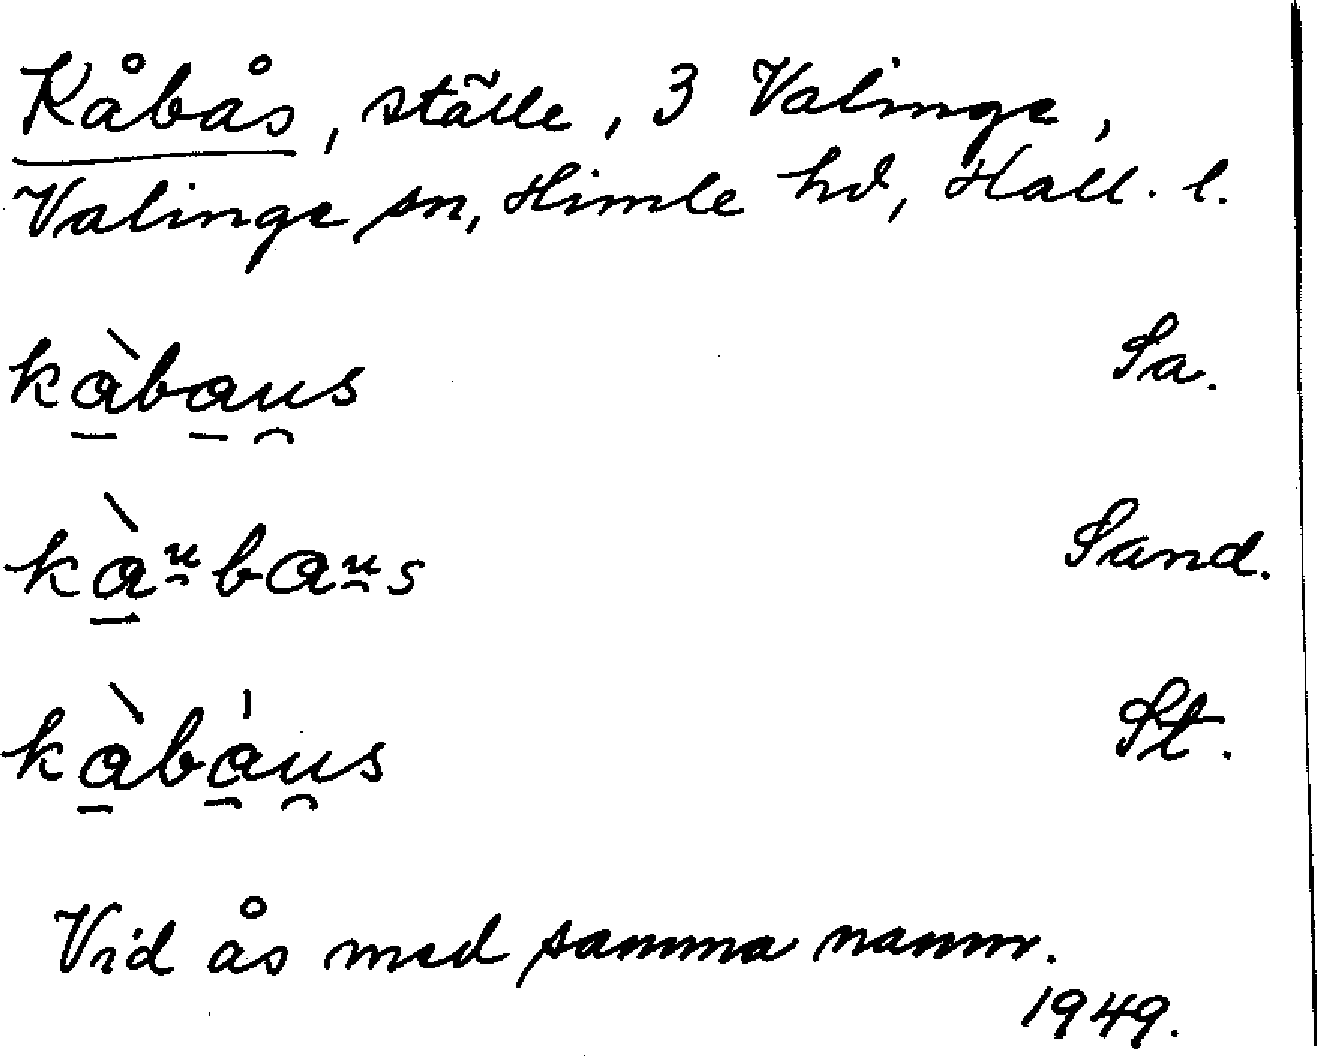 Kåbås, ställe, 3 Valinge,
Valinge sn, Himle hd, Hall. l.
kàba̱u̯s Sa.
kàᵘ̯baᵘ̯s Sand.
kàba̍u̯s St.
Vid ås med samma namn.
1949.